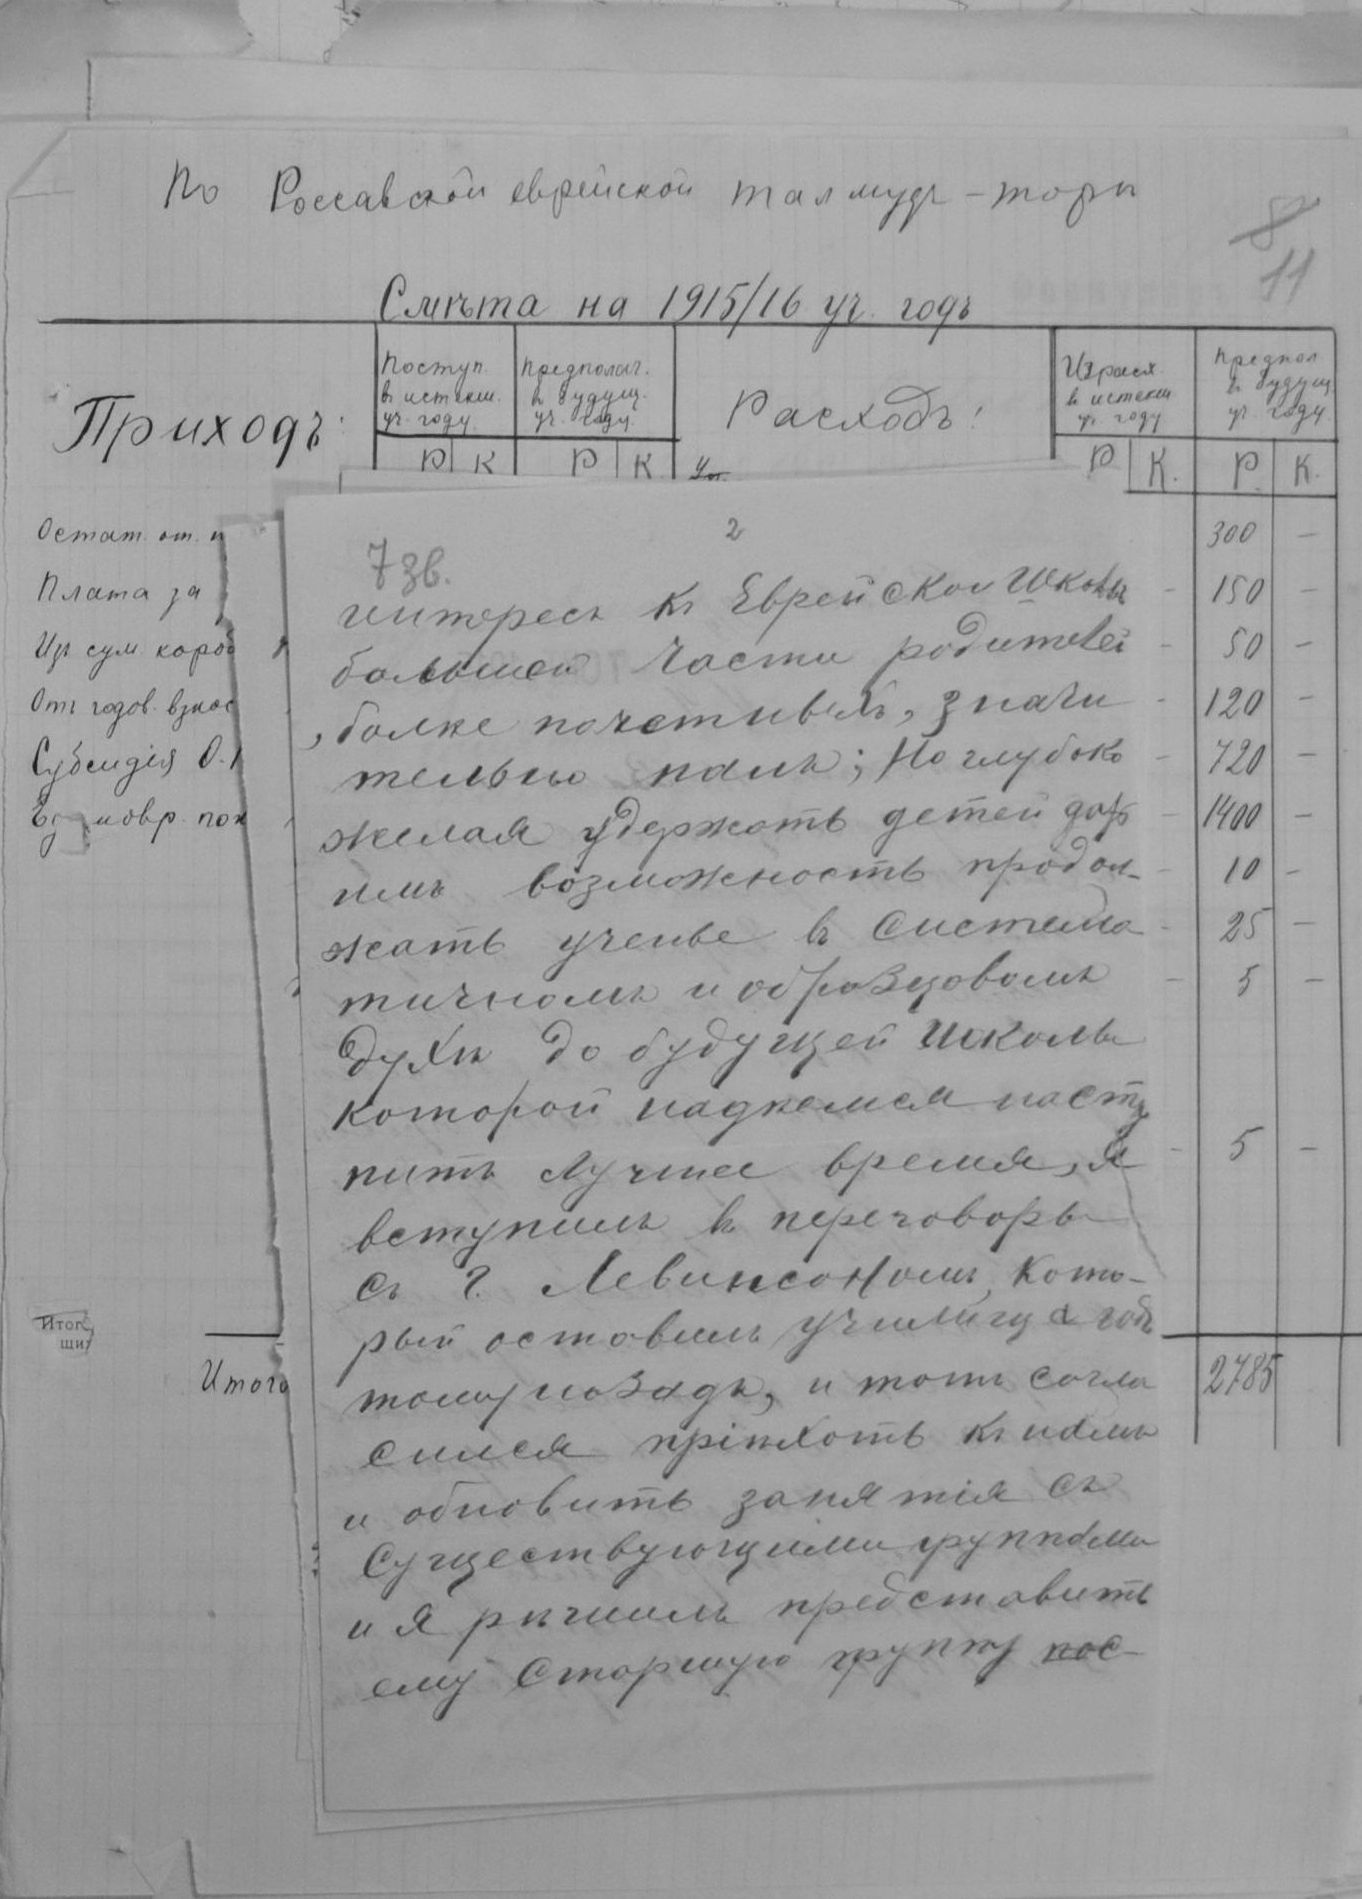 По Россавской еврейской талмудъ-торы
8
11
Смѣта на 1915/16 уч. годъ
Приходъ:
Поступ. въ истекш. уч. году
Предполаг. въ будущ. уч. году
Расходъ:
Израсх. въ истекш. уч. году
Предпол. въ будущ. уч. году
Р К Р К Р К. Р. К.
Остат. от.
Плата за
Изъ сум. короб
Отъ годов. взнос
Субсидія О.
Итого
300 —
150 —
50 —
120 —
720 —
1400 —
10 —
25 —
5 —
5 —
2785
2
7 зв.
интересъ къ Еврейской Школѣ
большей части родителей
, болѣе почетныхъ, значи
тельно палъ; Но глубоко
желая удержать детей дать
имъ возможность продол-
жать ученье въ система
тичномъ и образцовомъ
духѣ до будущей школы
которой надѣемся насту
питъ лучшее время, я
вступилъ въ переговоры
съ г. Левинсономъ, кото-
рый оставилъ училищу годъ
тому назадъ, и тотъ согла
сился пріѣхать къ намъ
и обновить занятія съ
Существующими группами
и я рѣшилъ представить
ему Старшую группу пос-